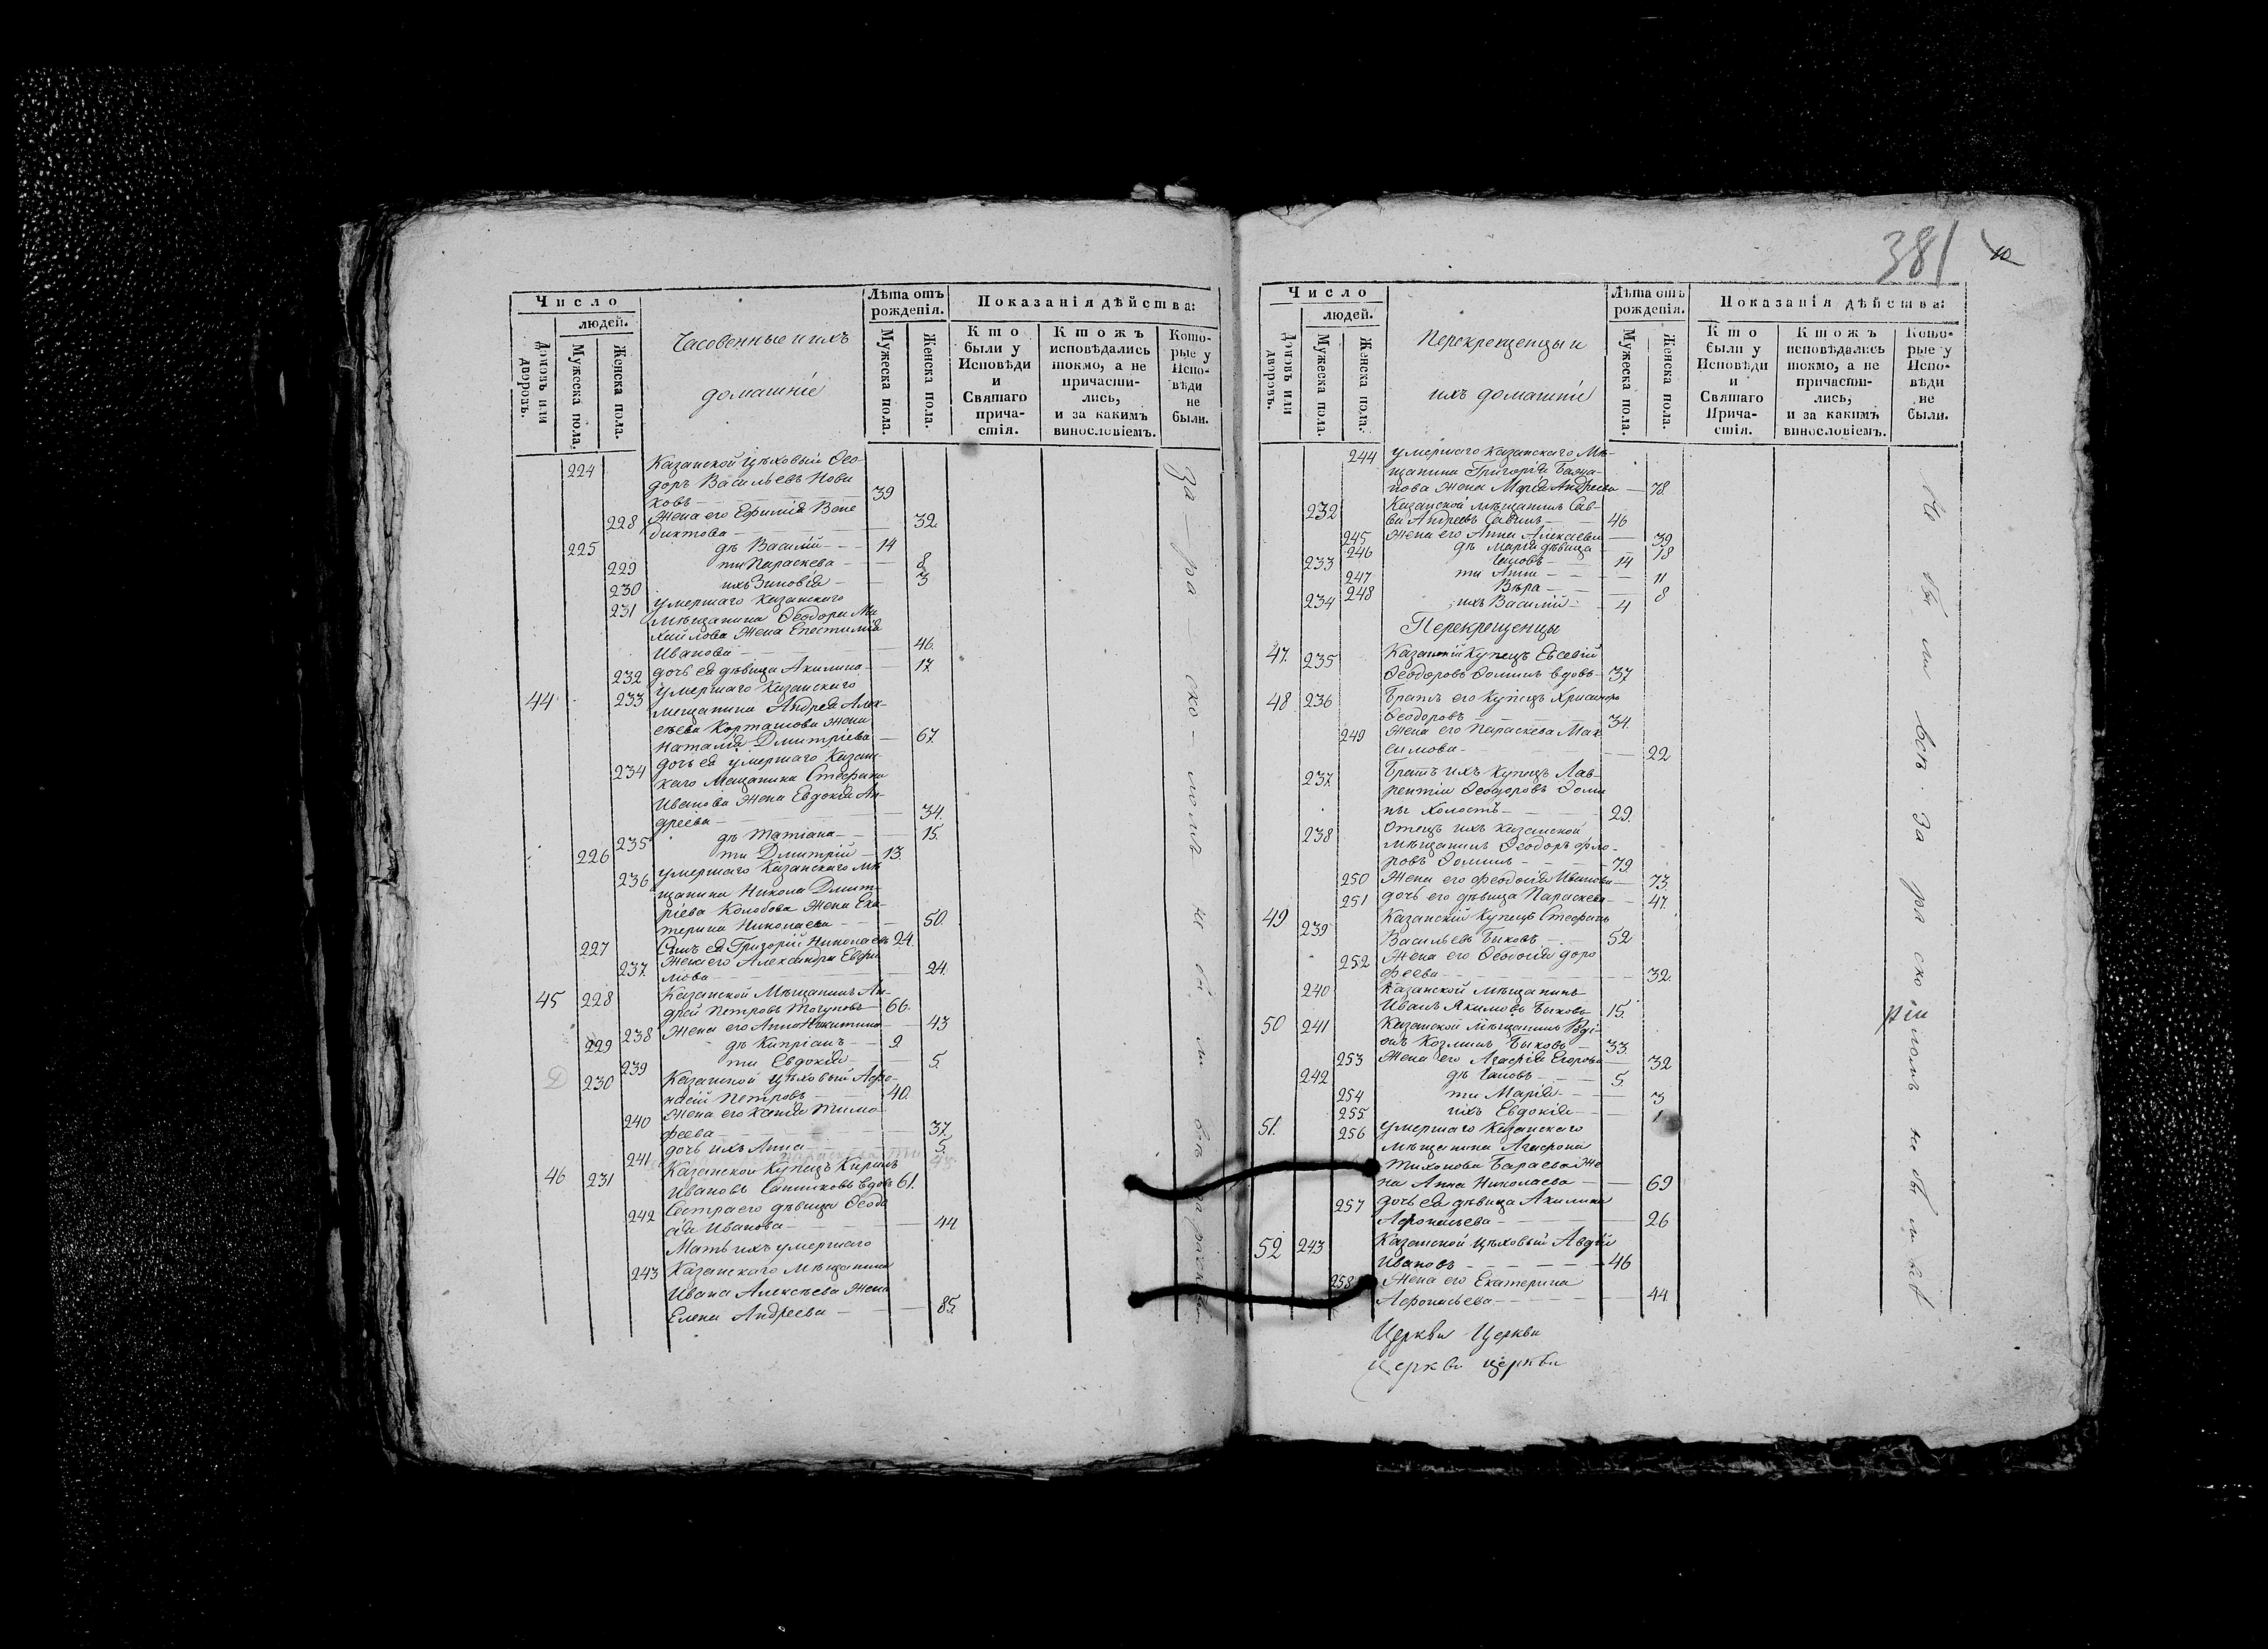 Число
людей.
Домовъ или дворовъ.
Мужеска пола.
Женска пола.
Часовенные и ихъ
домашніе
Лѣта отъ
рожденія.
Мужеска пола.
Женска пола.
Показанія дѣйства:
Кто
были у
Исповѣди
и
Святаго
прича-
стія.
Ктожъ
исповѣдались
токмо, а не
причасти-
лись,
и за какимъ
винословіемъ.
Кото-
рые у
Испо-
вѣди
не
были.
224 Казанской Цѣховый Ѳео
доръ Васильевъ Нови
ковъ 39
228 Жена его Ефимія Вене
диктова 32
225 дѣ Василій 14
229 ти Параскева 8
230 ихъ Зиновія 3
231 умершаго Казанскаго
Мѣщанина Ѳеодора Ми
хайлова Жена
Иванова 46.
232 дочь ея дѣвица Акилина 17
44 233 умершаго Казанскаго
мещанина Андрея Алек-
сѣева Карташова жена
Наталія Дмитріева 67
234 дочь ея умершаго Казанс-
каго Мещанина Стефана
Иванова Жена Евдокія Ан-
дреева 34.
235 дѣ Татіана 15.
226 ти Дмитрій 13.
236 умершаго Казанскаго Мѣ
щанина Никола Дмит-
ріева Колобова Жена Ека-
терина Николаева 50.
227 Сынъ ея Григорій Николаевъ 24.
237 Жена его Александра Евфи
мова 24.
45 228 Казанской Мѣщанинъ Ан-
дрей Петровъ 66.
238 Жена его Анна Никитина 43
229 дѣ Кипріанъ 9
239 ти Евдокія 5.
230 Казанской Цѣховый Афо-
насій Петровъ 40.
240 Жена его Ксенія Тимо
феева 37.
241 дочь ихъ Анна 5.
46 231 Казанской Купецъ Кирилъ
Ивановъ вдовъ 61.
242 Сестра его дѣвица Ѳеодо
сія Иванова 44
Мать ихъ умершаго
243 Казанскаго Мѣщанина
Ивана Алексѣева Жена
Елена Андреева 85.
за-ра ско-ломъ не бы ли
381
10
Число
людей.
Домовъ или дворовъ.
Мужеска пола.
Женска пола.
Перекрещенцы и
ихъ домашніи
Лѣта отъ
рожденія.
Мужеска пола.
Женска пола.
Показанія дѣйства:
Кто
были у
Исповѣди
и
Святаго
Прича-
стія.
Ктожъ
исповѣдались
токмо, а не
причасти-
лись,
и за какимъ
винословіемъ.
Кото-
рые у
Испо-
вѣди
не
были.
244 умершаго Казанскаго Мѣ-
щанина Григорія
Жена Марія Андреева 78.
232 Казанской мѣщанинъ Сав-
ва Андреевъ Савинъ 46
245 Жена его Анна Алексеева 39
246 дѣ Марія дѣвица 18
233 Іаковъ 14
247 ти Анна 11
248 Вѣра 8
234 ихъ Василій 4
Перекрещенцы
47. 235 Казанскій Купецъ Евсевій
Ѳеодоровъ Ѳоминъ вдовъ 37
48 236 Братъ его Купецъ
Ѳеодоровъ 34.
249 Жена его Параскева Мак
симова 22
237. Братъ ихъ Купецъ Лав-
рентій Ѳеодоровъ Ѳоми
нъ холостъ 29.
238 Отецъ ихъ Казанской
мѣщанинъ Ѳеодоръ Фло-
ровъ Ѳоминъ 79.
250 Жена его Феодосія Иванова 73.
251 дочь его дѣвица Параскева 47.
49 239 Казанскій Купецъ Стефанъ
Васильевъ Быковъ 52
252 Жена его Ѳеодосія Доро
феева 32.
240 Казанской мѣщанинъ
Иванъ Якимовъ Быковъ 15.
50 241 Казанской мѣщанинъ Роді-
онъ Козминъ Быковъ 33.
253 Жена его Агафія Егорова 32
242 дѣ Іаковъ 5
254 ти Марія 3
255 ихъ Евдокія 1
51. 256 умершаго Казанскаго
мѣщанина Агафона
Тихонова Жe
на Анна Николаева 69
257 дочь ея дѣвица Акилина
Афонасьева 26
52 243 Казанской Цѣховый Авдѣй
Ивановъ 46
258 Жена его Екатерина
Афонасьева 44
за ра ско ломъ не бы ли
Церкви Церкви
Церкви церкви